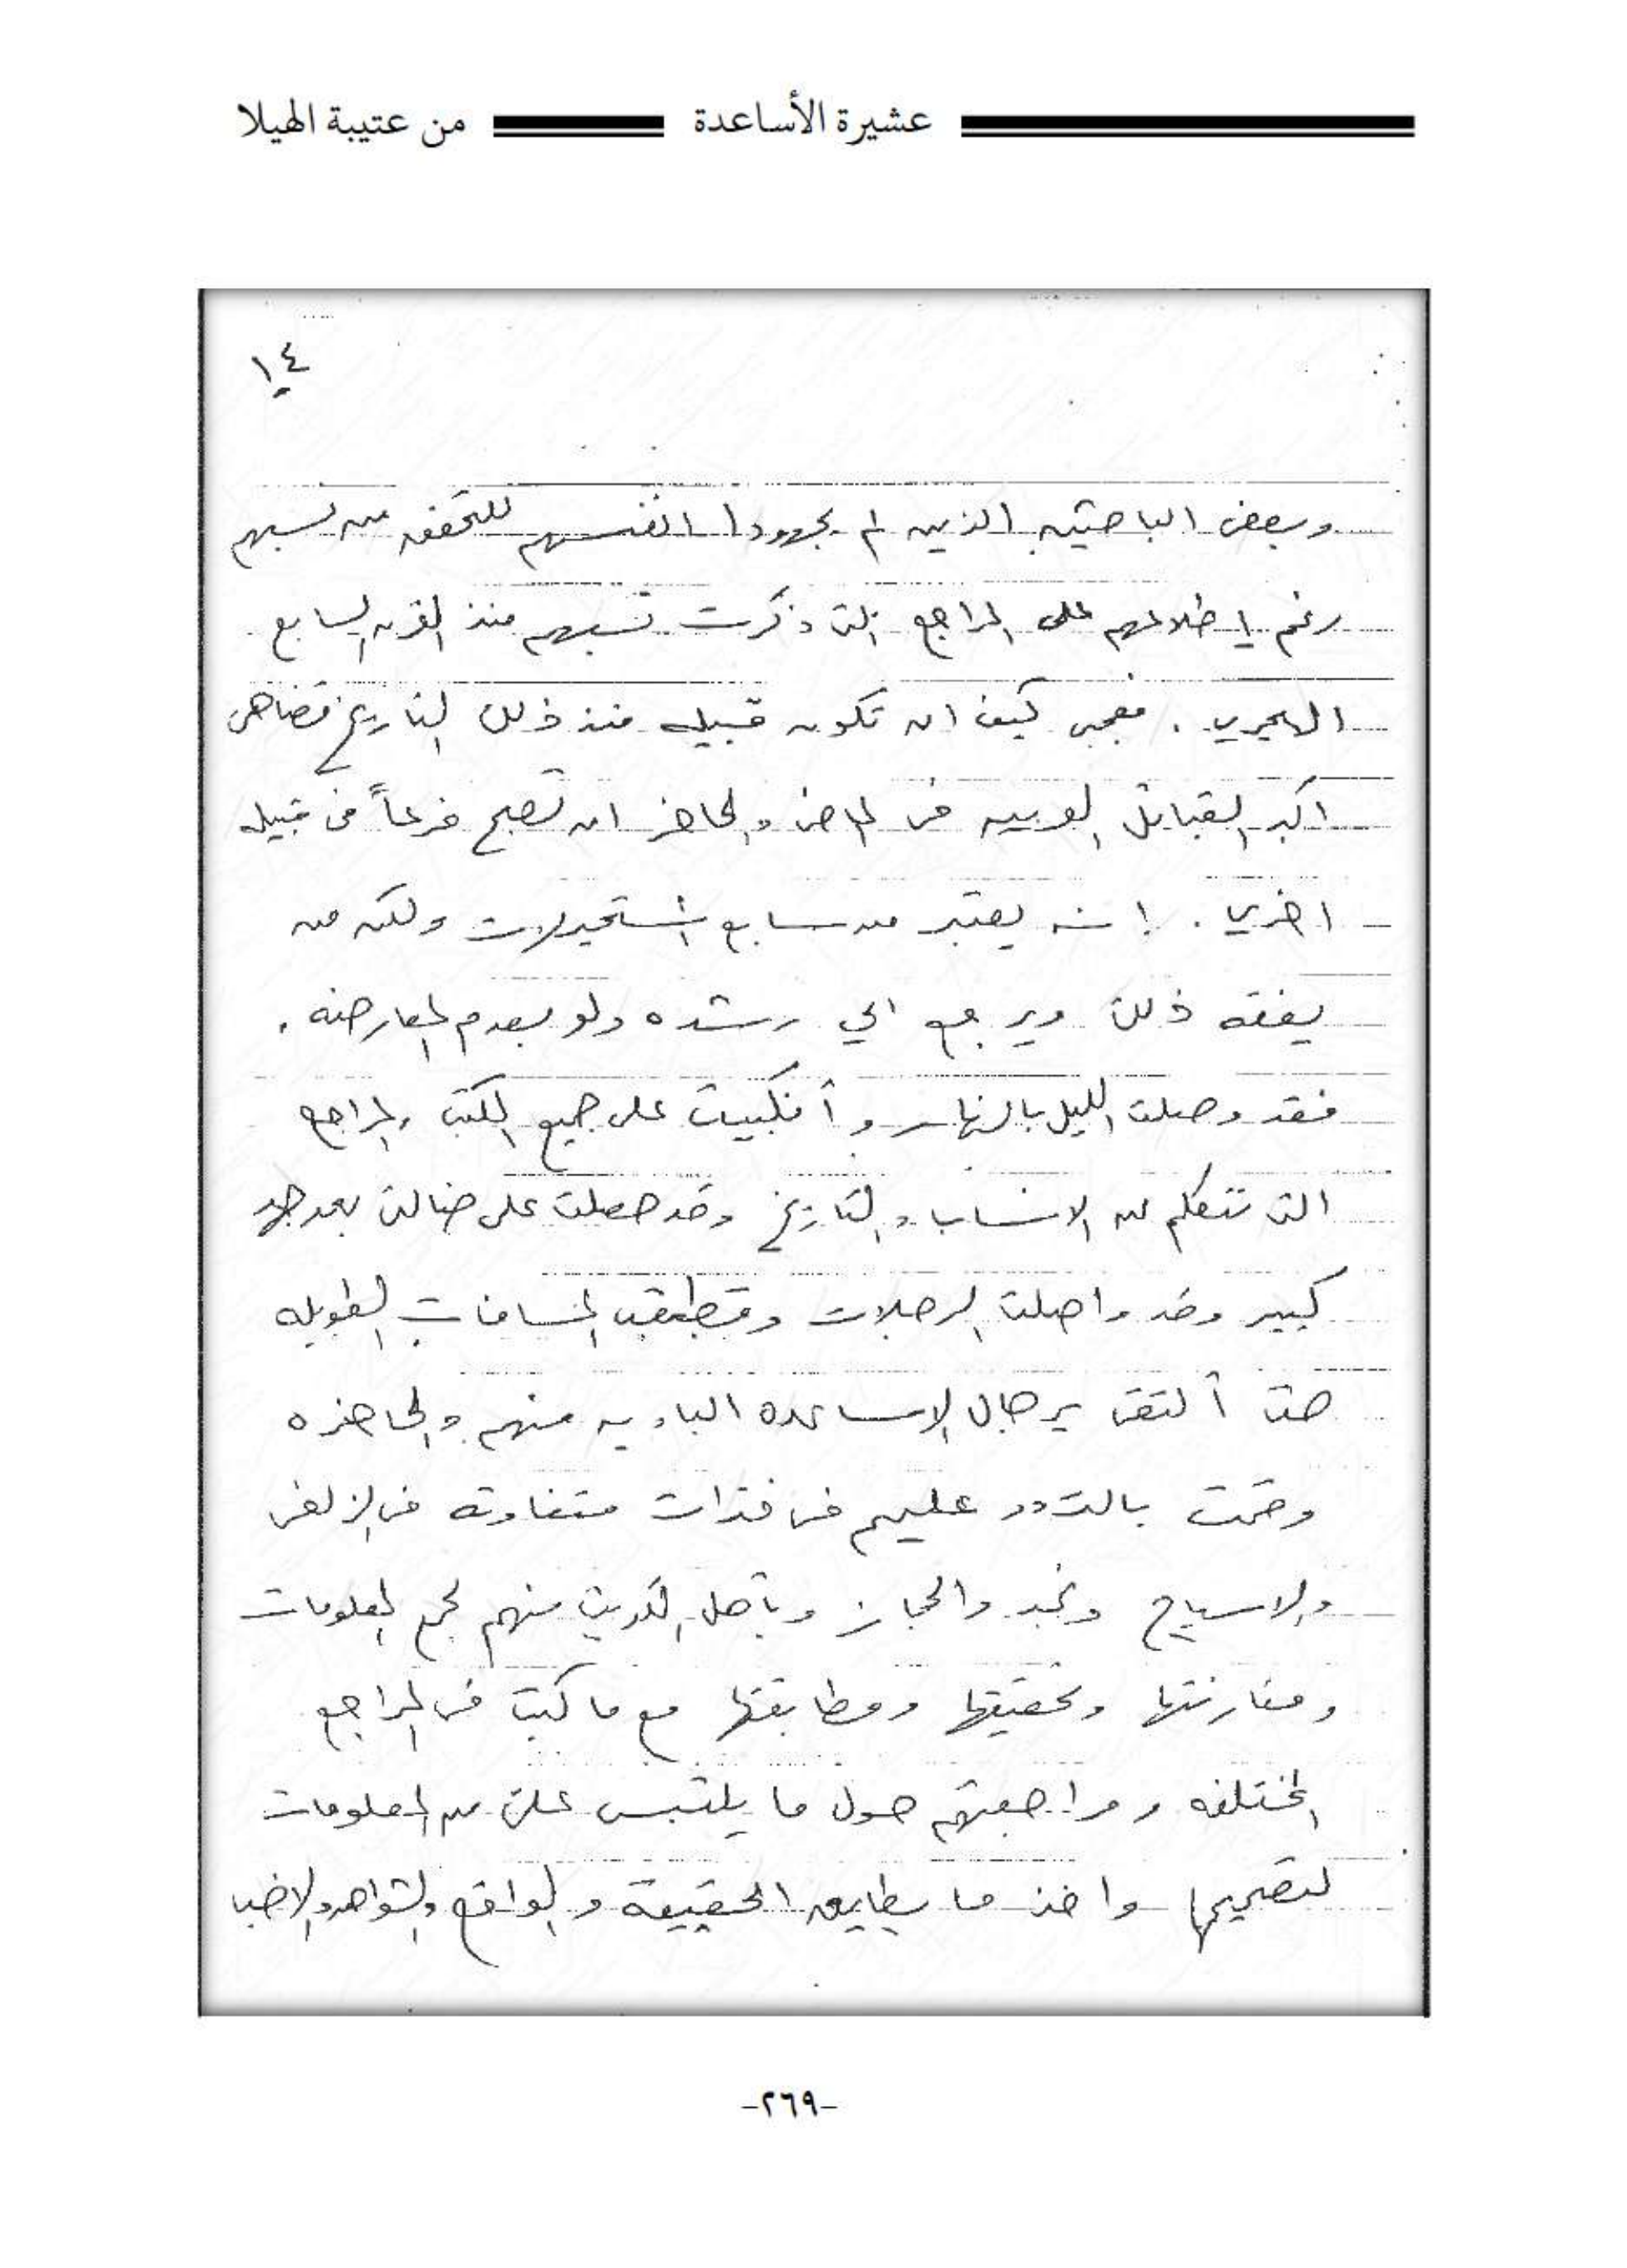 عشيرة الأساعدة من عتيبة الهيلا
١٤
وبعض الباحثين الذين لم يجهدوا انفسهم للتحقق من نسبهم
رغم إطلاعهم على المراجع التي ذكرت نسبهم منذ القرن السابع
الهجري . فعجبي كيف ان تكون قبيله منذ ذلك التاريخ تضاهي
اكبر القبائل العربيه في الماضي والحاضر ان تصبح فرعاً في قبيله
اخرى . إنه يعتبر من سابع المستحيلات ولكن من
يفقه ذلك ويرجع الي رشده ولو بعدم المعارضه .
فقد وصلت الليل بالنهار وأنكبيت على جميع الكتب والمراجع
التي تتكلم عن الانساب والتاريخ وقد حصلت على ضالتي بعد جهد
كبير وقد واصلت الرحلات وقطعت المسافات الطويله
حتى ألتقي برجال الاساعده الباديه منهم والحاضره
وقمت بالتردد عليهم في فترات متفاوته في الزلفي
والاسياح ونجد والحجاز وبأهل الكويت منهم لجمع المعلومات
ومقارنتها وتحقيقها ومطابقتها مع ما كتب في المراجع
المختلفه ومراجعتهم حول ما يلتبس علي من المعلومات
لتصحيحها واخذ ما يطابق الحقيقة والواقع والشواهد والاخبا
-٢٦٩-